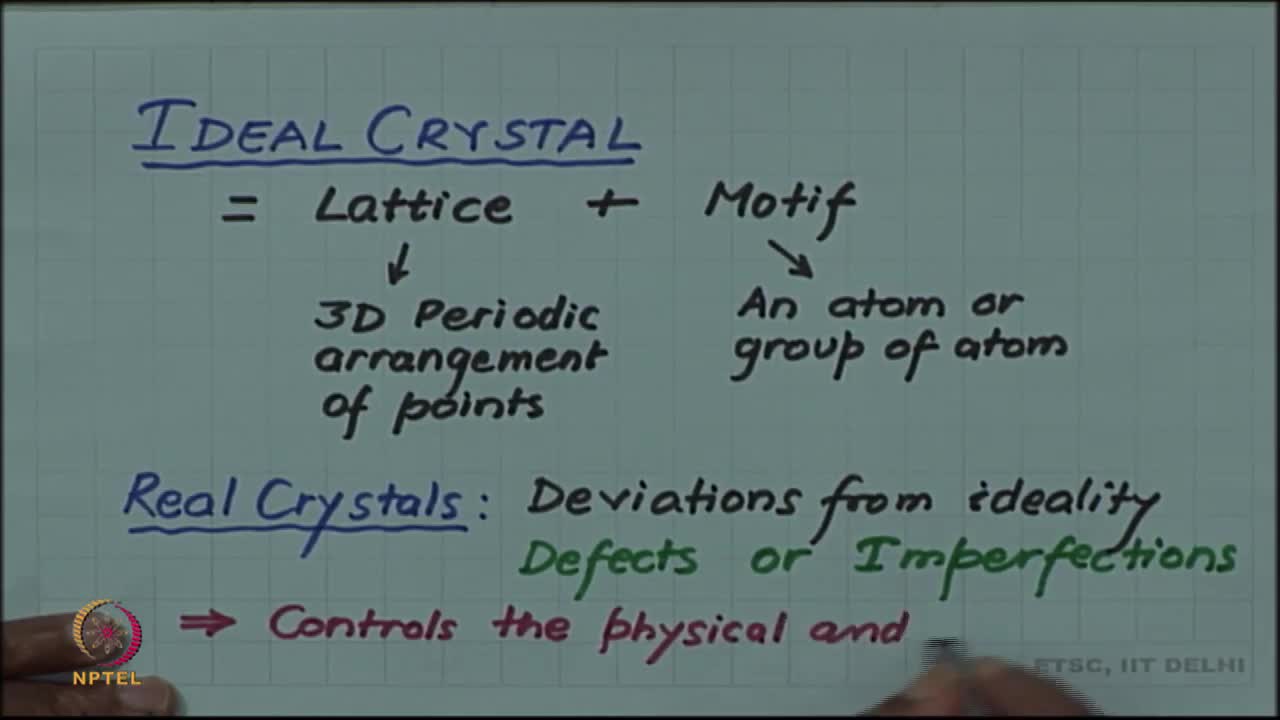 IDEAL CRYSTAL
= Lattice + Motif
3D Periodic
arrangement
of points
An atom or
group of atom
Real Crystals: Deviations from ideality
Defects or Imperfections
⇒ Controls the physical and
NPTEL
ETSC, IIT DELHI